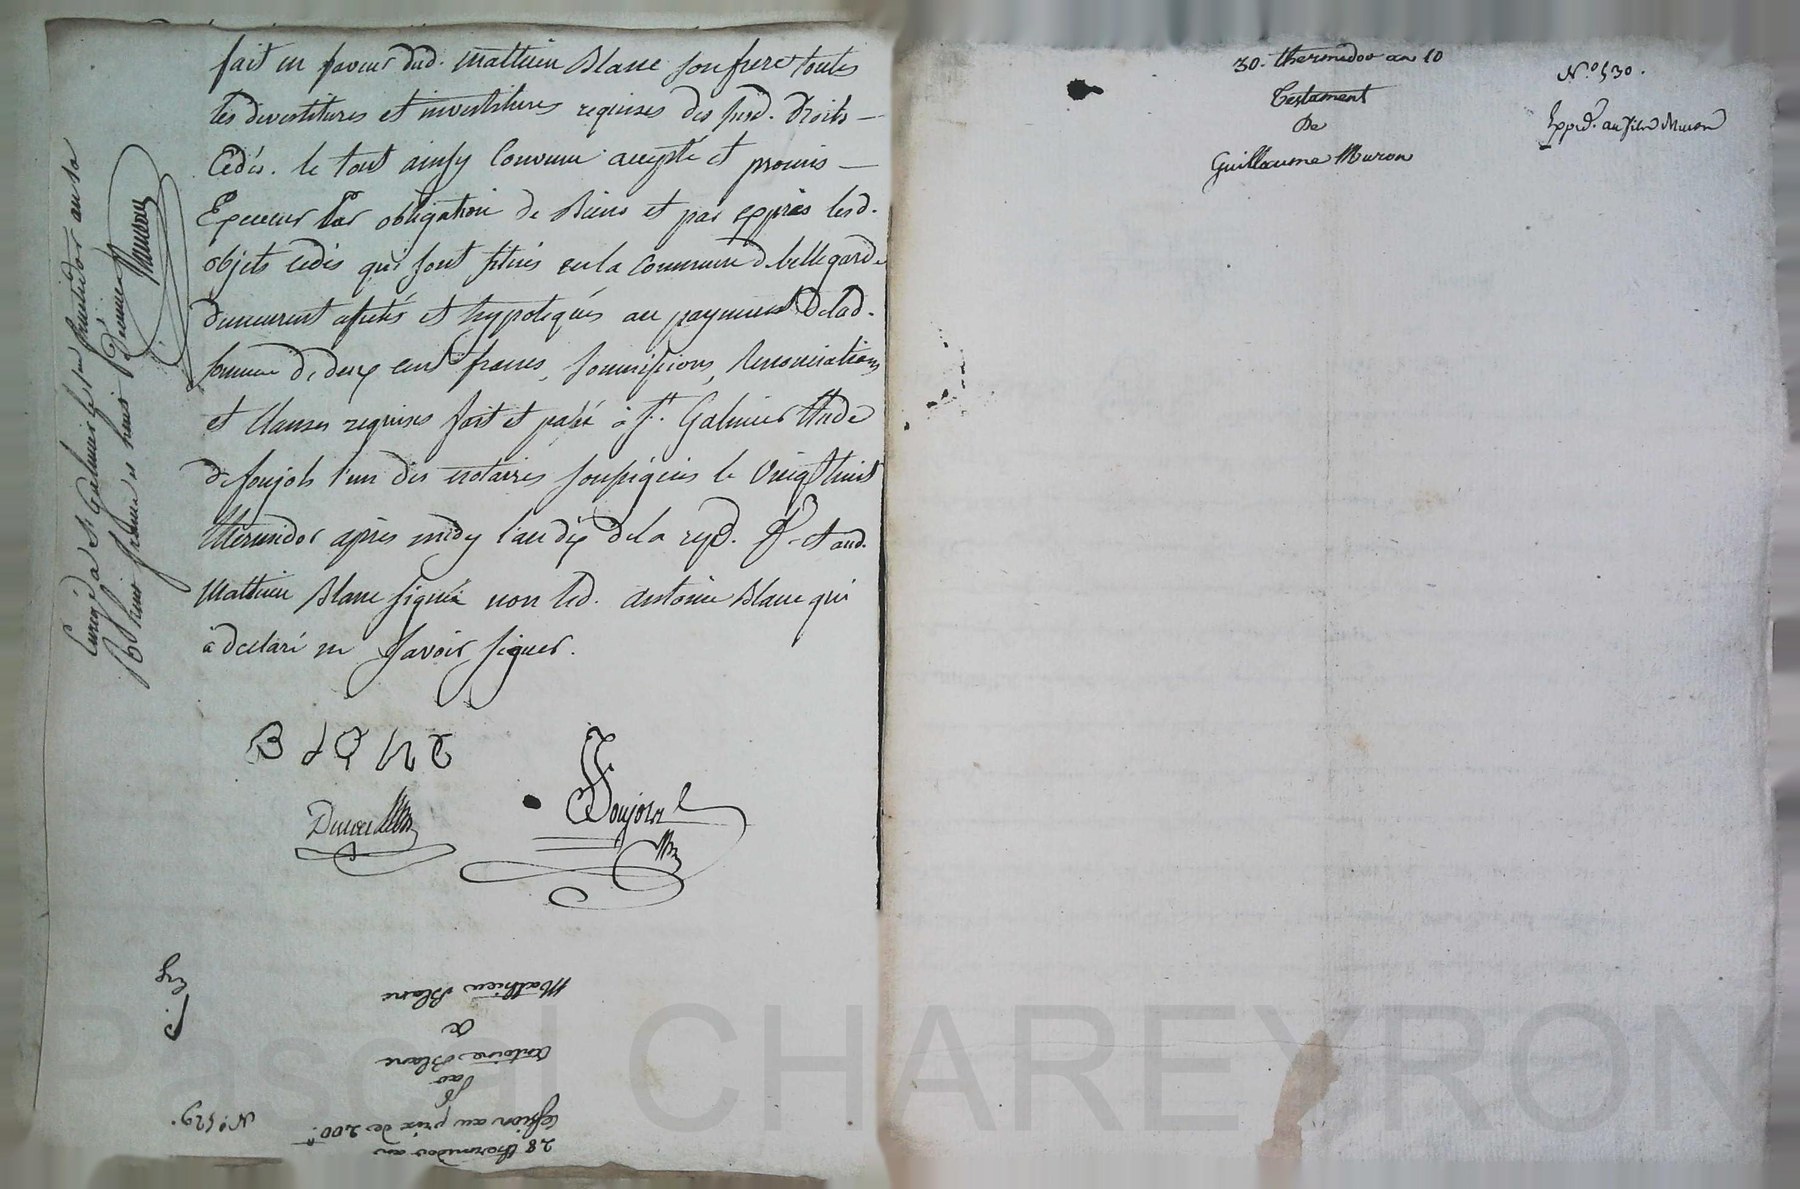 fait en faveur dud. Mathieu Blanc son frere toutes
les devestitures et investitures requises des susd. droits
Cedés. le tout ainsy Convenu accepté et promis
Executer Par obligation de Biens et par exprès lesd.
objets cedés qui sont situés en la Commune de bellegarde
demeurent afectés et hypotequés au payement de lad.
somme de deux cent francs, soumissions, Renonciations
et Clauses requises fait et passé à St. Galmier Etude
de soujols l'un des notaires soussignés le Vingt huit
thermidor après midy l'an dix de la rep.
Mathieu Blanc signé non led. antoine Blanc qui
a declaré ne savoir signer.
Blanc
Soujols
Enregé à St Galmier le
Reçu huit francs
N.° 529.
28 thermidor an
Cession au prix de 200.tt
par
antoine Blanc
a
Mathieu Blanc
30. thermidor an 10
Testament
De
Guillaume Muron
N.° 530.
Expéd. au filx Muron
Pascal CHAREYRON